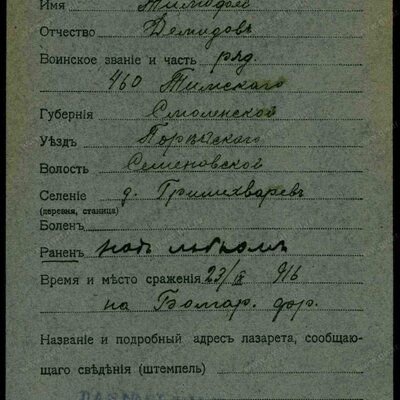 Имя Тимофей
Отчество Демидовъ
Воинское званіе и часть ряд.
460 Тимскаго
Губернія Смоленской
Уѣздъ Порѣчскаго
Волость Семеновской
Селеніе д.
(деревня, станица)
Боленъ
Раненъ
Время и мѣсто сраженія 23/IX 916
на Болгар. фр.
Названіе и подробный адресъ лазарета, сообщаю-
щаго свѣдѣнія (штемпель)